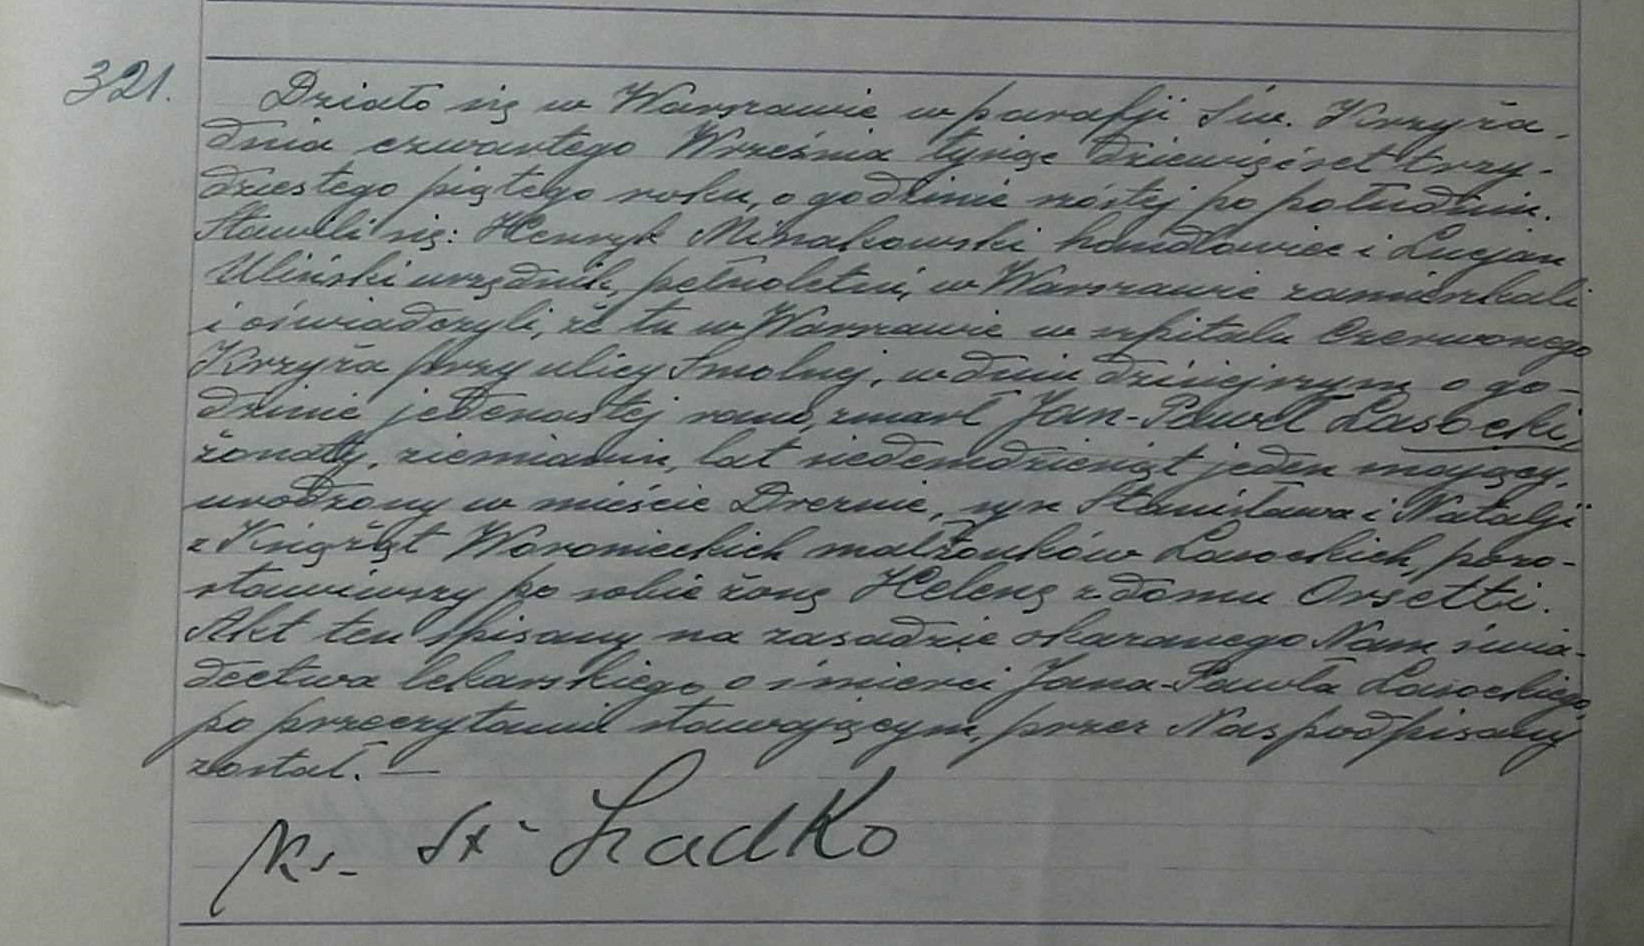 321.
Działo się w Warszawie w parafji Św. Krzyża,
dnia czwartego Września tysiąc dziewięćset trzy-
dziestego piątego roku, o godzinie szóstej po południu.
Stawili się: Henryk Minakowski handlowiec i Lucjan
Uliński urzędnik, pełnoletni, w Warszawie zamieszkali
i oświadczyli, że tu w Warszawie w szpitalu Czerwonego
Krzyża przy ulicy Smolnej, w dniu dzisiejszym o go-
dzinie jedenastej rano, zmarł Jan-Paweł Lasocki,
żonaty, ziemianin, lat siedemdziesiąt jeden mający,
urodzony w mieście Dreźnie, syn Stanisława i Natalji
z Książąt Woronieckich małżonków Lasockich, pozo-
stawiwszy po sobie żonę Helenę z domu Orsetti.
Akt ten spisany na zasadzie okazanego Nam świa-
dectwa lekarskiego o śmierci Jana-Pawła Lasockiego,
po przeczytaniu stawającym, przez Nas podpisany
został. —
Ks. St.